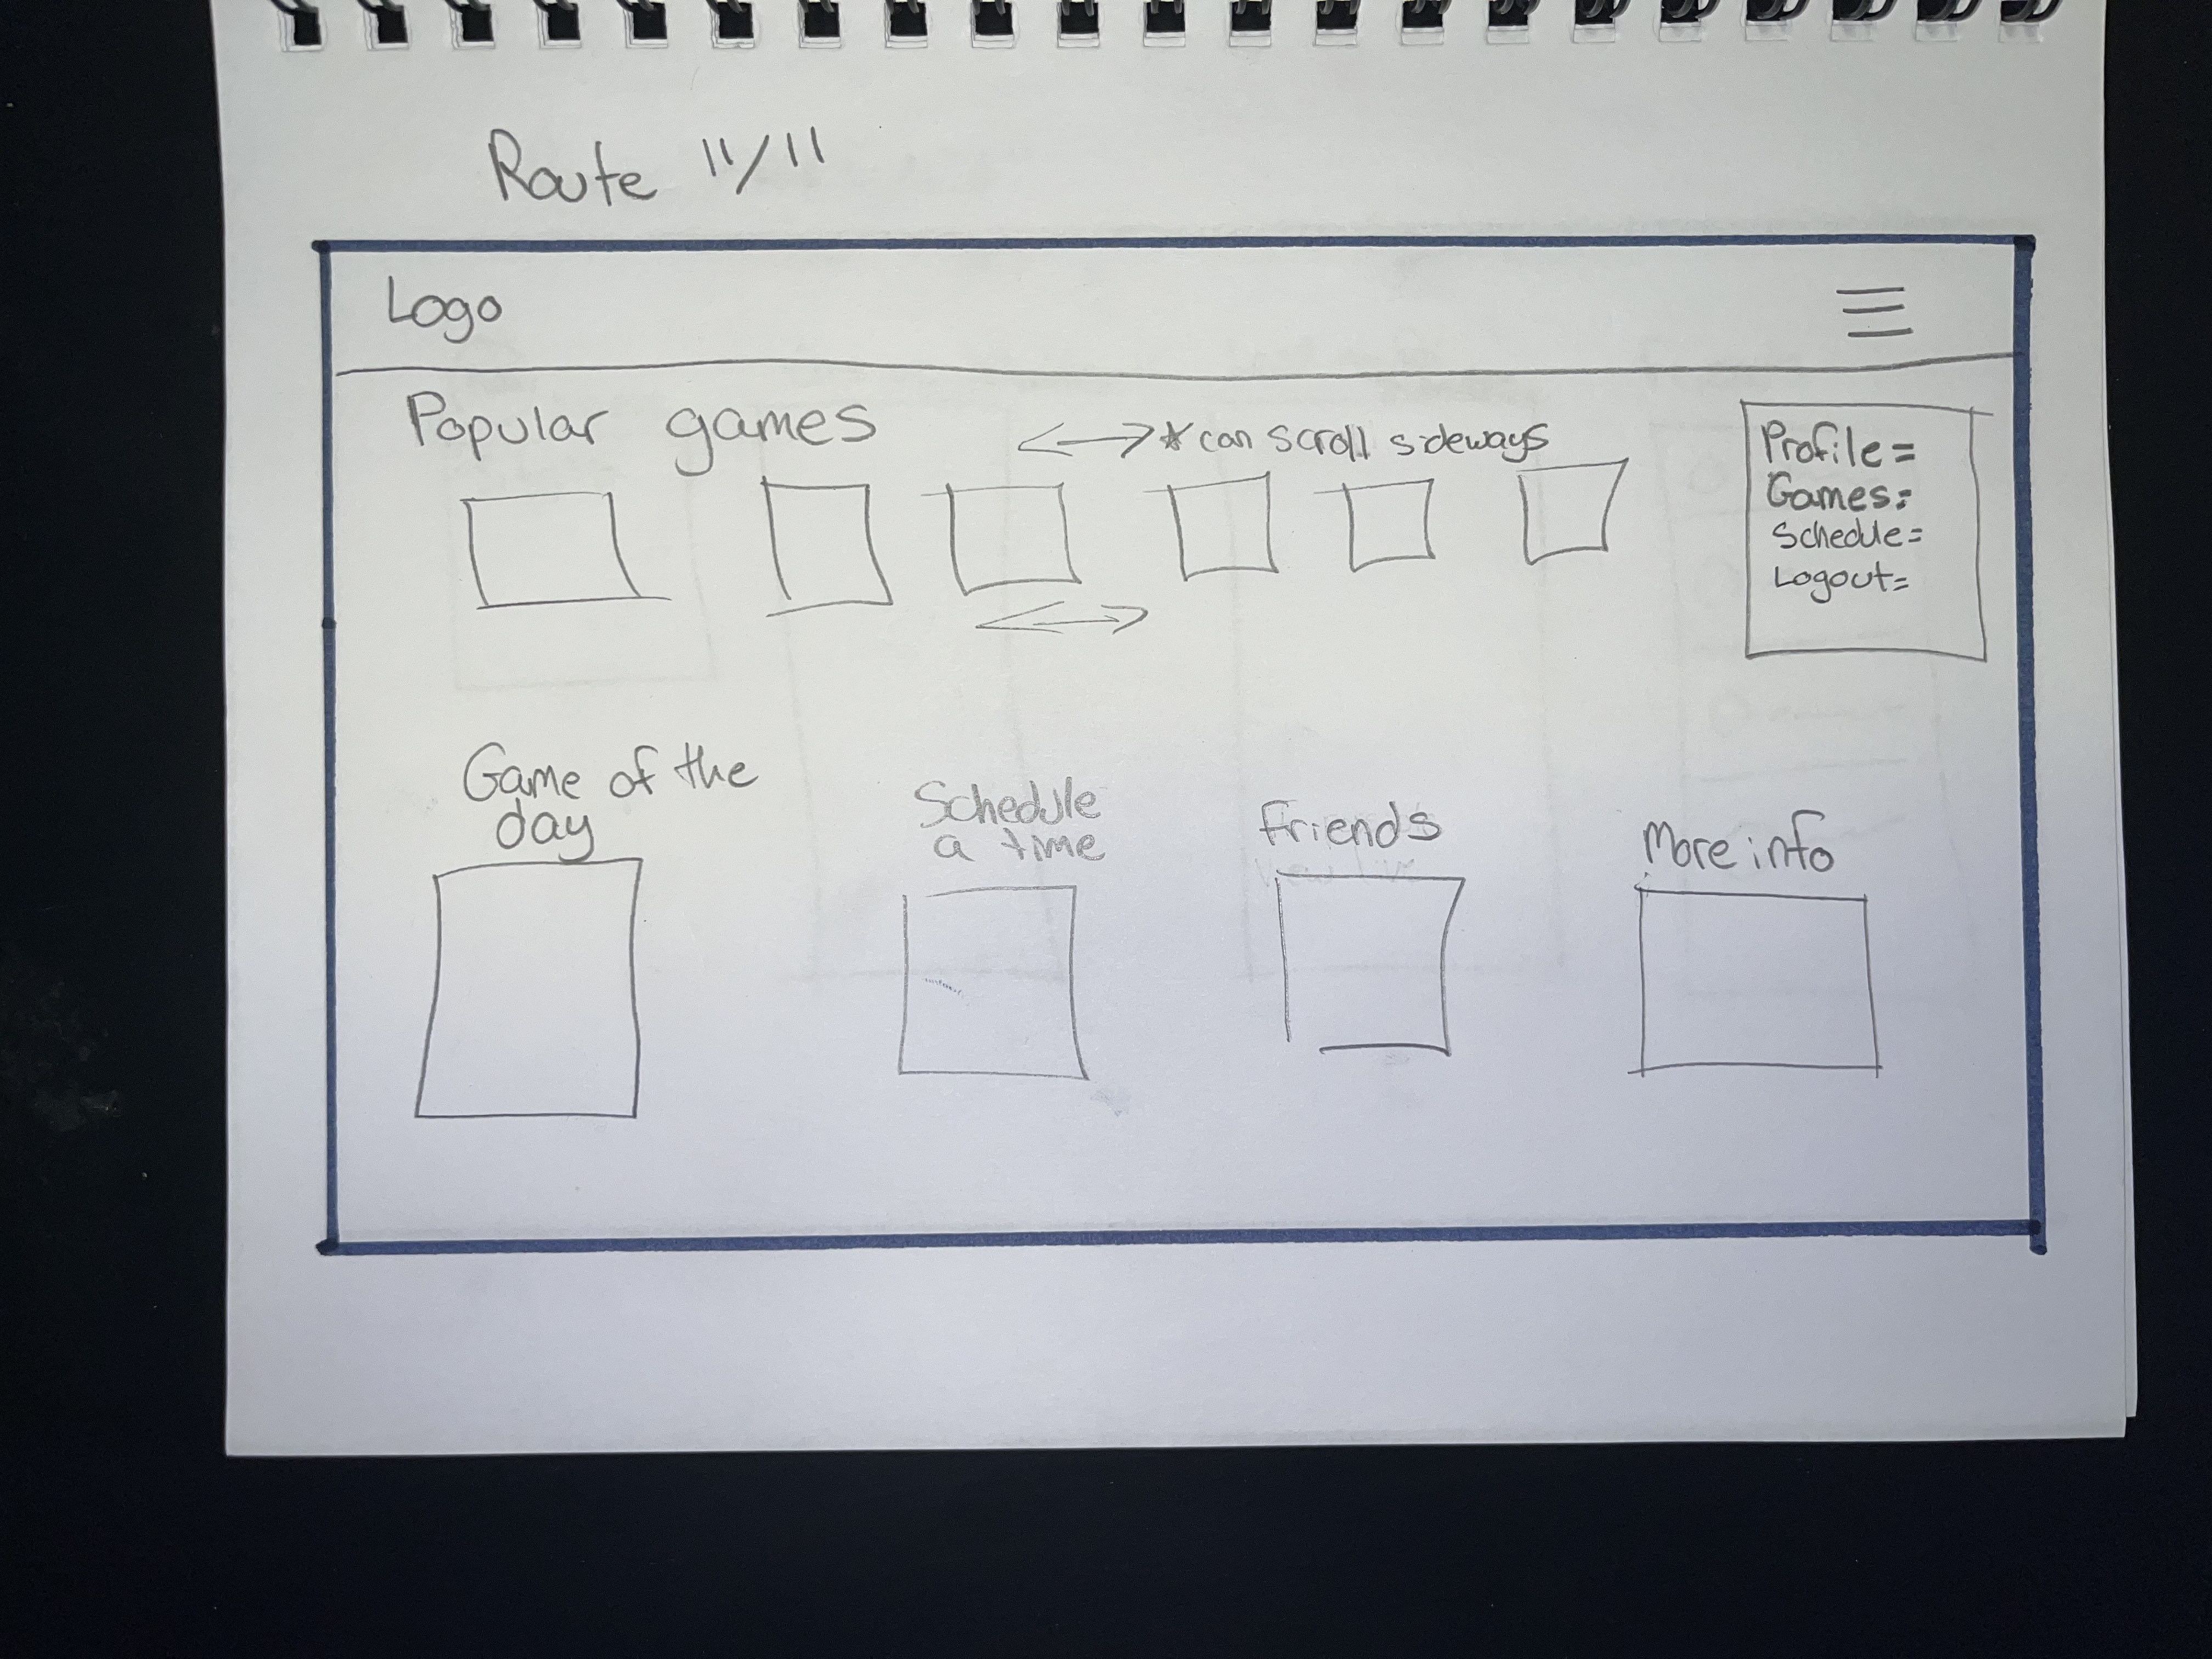 Route "/"
Logo
Popular games
*can scroll sideways
Profile=
Games=
Schedule=
Logout=
Game of the
day
Schedule
a time
Friends
More info